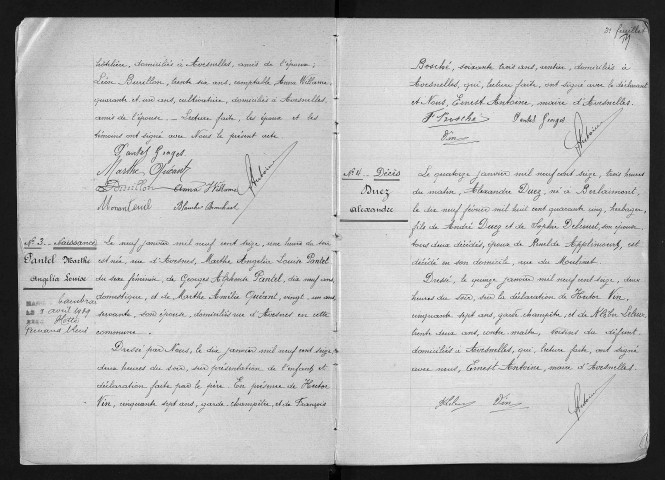 hôtelière, domiciliés à Avesnelles, amis de l'épouse ;
Léon Burillon, trente six ans, comptable Anna Willame,
quarante et un ans, cultivatrice, domiciliés à Avesnelles,
amis de l'épouse. — Lecture faite, les époux et les
témoins ont signé avec Nous le présent acte
Pantel Georges
Marthe Quéant
Anna Willame
Antoine
N° 3 . Naissance
Pantel Marthe
Angélia Louise
Le neuf janvier mil neuf cent seize, une heure du soir
est née, rue d'Avesnes, Marthe Angélia Louise Pantel
du sexe féminin, de Georges Alphonse Pantel, dix neuf ans,
domestique, et de Marthe Amélie Quéant, vingt un ans,
servante, son épouse, domiciliés rue d'Avesnes en cette
commune. —
Cambrai
1 avril 1939
Dressé par Nous, le dix janvier mil neuf cent seize,
deux heures du soir, sur présentation de l'enfant et
déclaration faite par le père. En présence de Hector
Vin, cinquante sept ans, garde-champêtre, et de François
31 feuillet
Bosché, soixante trois ans, rentier, domiciliés à
Avesnelles, qui, lecture faite, ont signé avec le déclarant
et Nous, Ernest Antoine, maire d'Avesnelles.
F Bosché Pantel Georges
Vin Antoine
N° 4 . . Décès
Duez
Alexandre
Le quatorze janvier mil neuf cent seize, trois heures
du matin, Alexandre Duez, né à Berlaimont,
le dix neuf février mil huit cent quarante cinq, herbager,
fils de André Duez et de Sophie son épouse,
tous deux décédés, époux de est
décédé en son domicile, rue du
Dressé, le quinze janvier mil neuf cent seize, deux
heures du soir, sur la déclaration de Hector Vin,
cinquante sept ans, garde champêtre, et de
trente deux ans, voisins du défunt,
domiciliés à Avesnelles, qui, lecture faite, ont signé
avec nous, Ernest Antoine, maire d'Avesnelles.
Vin Antoine